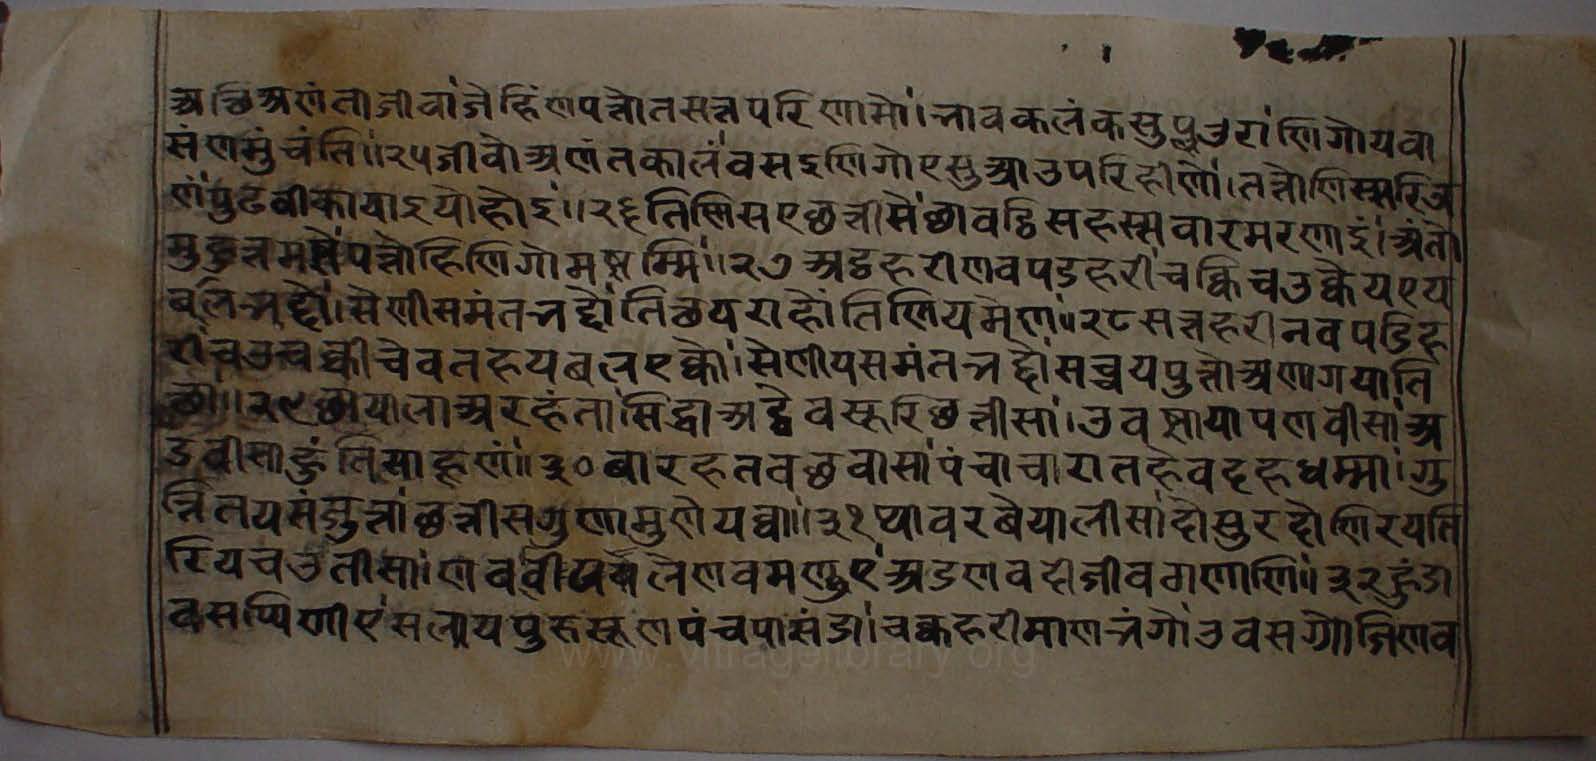 अछिअणंताजीवा।जेहिंणपत्तोतसत्तपरिणामो।भावकलंकसुपउरा।णिगोयवा
संणमुंचंति॥२५जीवोअणंतकालं।वसइणिगोएसुआउपरिहीणो।तत्तोणिस्सरिऊ
णं।पुढवीकायाइयोहोइं॥२६तिस्मिसएछत्तीसे।छावठिसहस्सवारमरणाइं।अंतो
मुहुत्तमज्झेपत्तोहिणिगोमझम्मि॥२७अट्ठहरीणवपडहरी।चक्किचउक्केयएय
बलभद्दो।सेणीसमंतभद्दो।तिछयराहोंतिणियमेणं॥२८सत्तहरीनवपडिह
री।चउचक्कीचेवतहयबलएक्को।सेणीयसमंतभद्दो।सच्चयपुत्तोअणागयाति
छा॥२९छायालाअरहंता।सिद्धाअट्ठेवसूरिछत्तीसा।उवझायापणवीसा।अ
डवीसाहुंतिसाहूणं॥३०बारहतवछवासा।पंचाचारातहेवदहधम्मा।गु
त्तितयसंजुत्ता।छत्तीसगुणामुणेयव्वा॥३१थावरबेयालीसा।दोसुरदोणिरयति
रियचउतीसा।णव लेणवमणुए।अडणवदीजीवगणाणि॥३२हुंडा
वसप्पिणीए।सलायपुरुसूणपंचपासंडा।चक्कहरीमाणभंगो।उवसग्गोजिणव
www.vitragelibrary.org